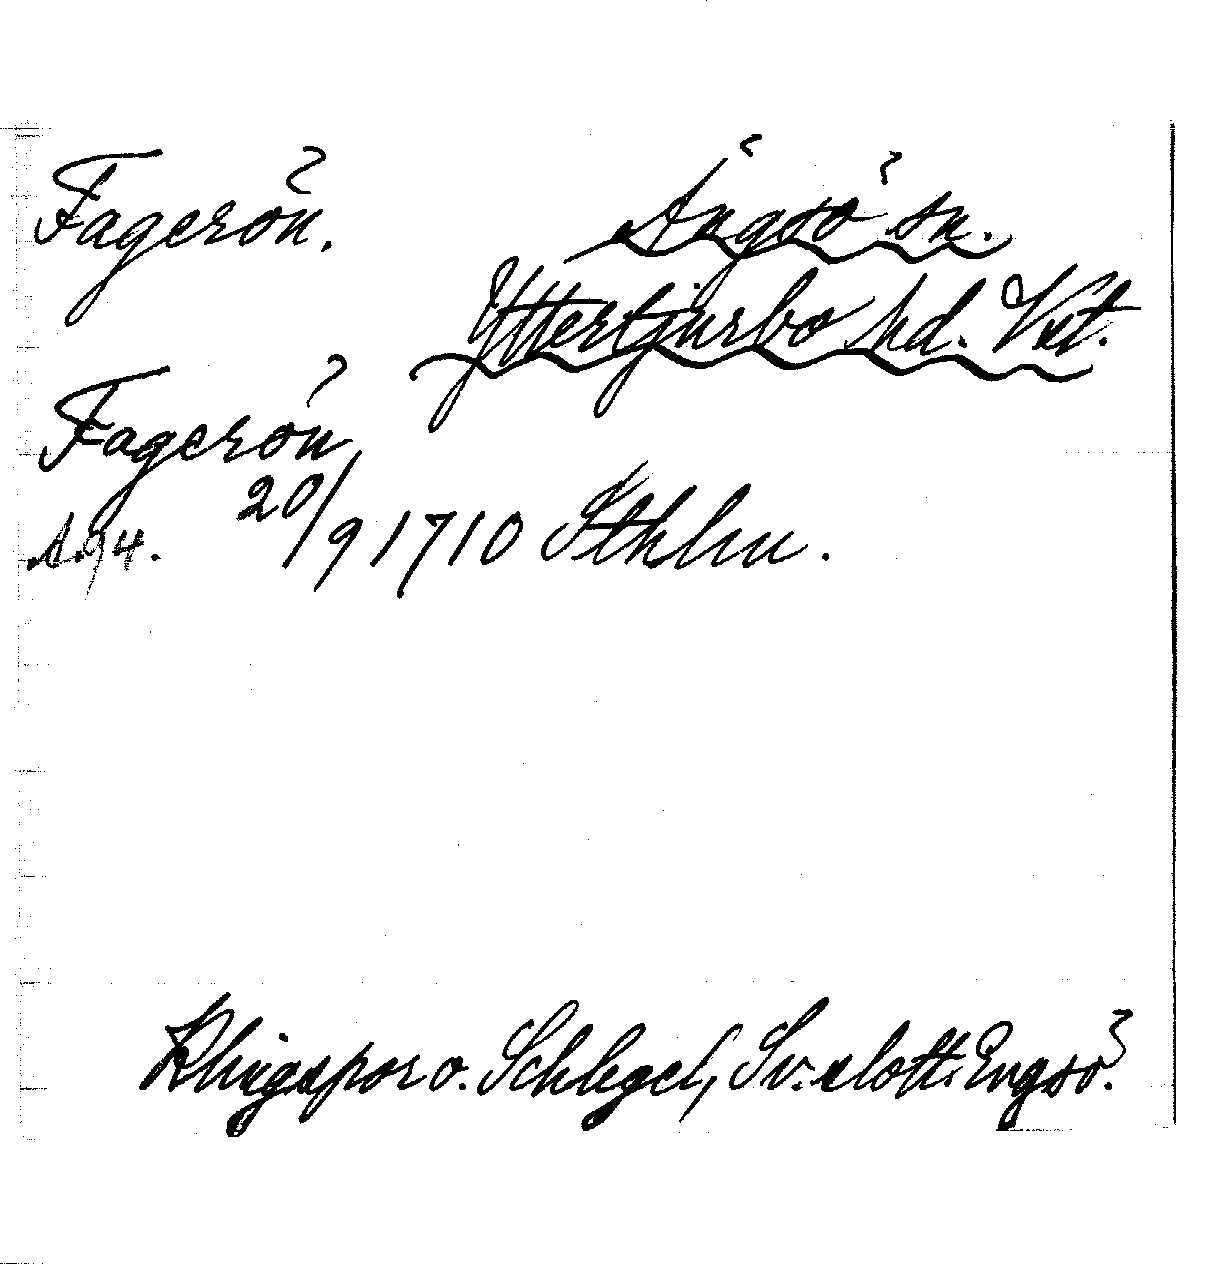 Fagerön.
Ängsö sn.
Yttertjurbo hd. Vstm.
Fagerön
s. 94. 20/9 1710 Sthlm.
Klingspor o. Schlegel, Sv. slott. Engsö.